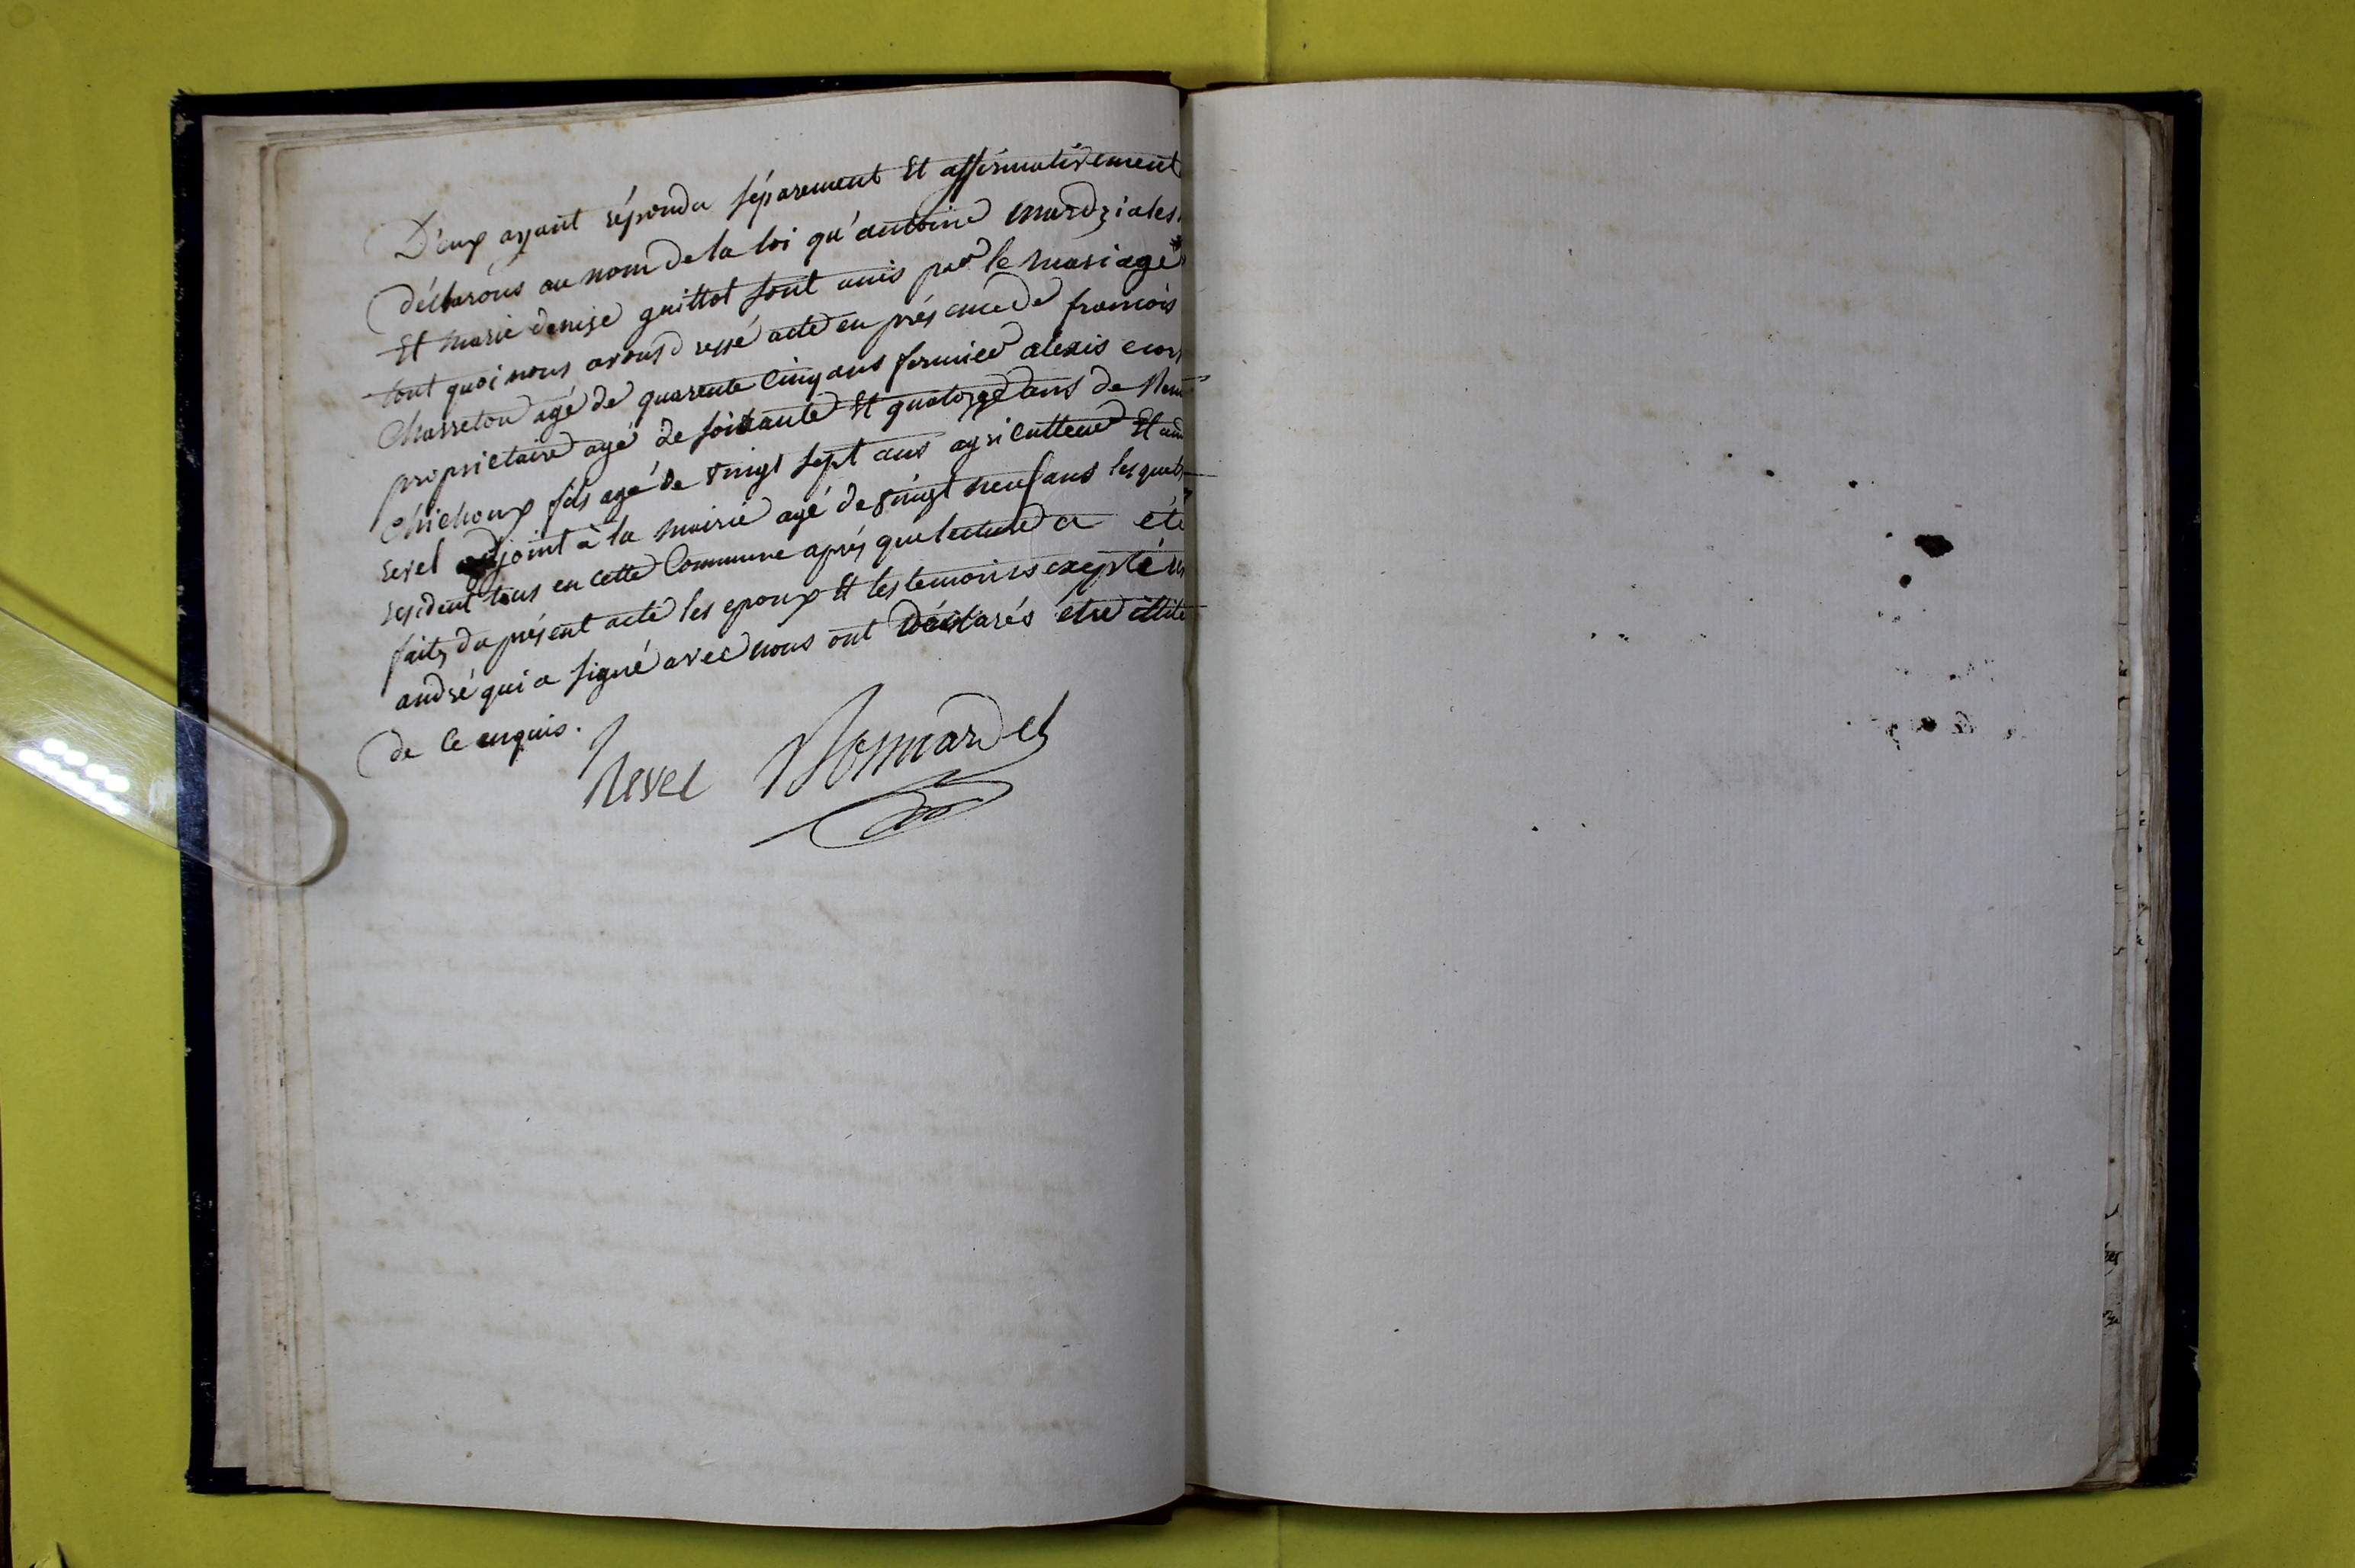 D'eux ayant répondu séparement Et affirmativement
déclarons au nom de la loi qu'antoine mardziales
Et marie denise guittot sont unis par le mariage
tout quoi nous avons dressé acte en présence de francois
Chasseton agé de quarente cinq ans fermier alexis
propriétaire agé de soixante Et quatorze ans de
Chichoux fils agé de vingt sept ans agriculteur Et
revel adjoint à la mairie agé de vingt neuf ans lesquels
resident tous en cette Commune après que lecture a été
faite du présent acte les epoux Et les temoins excepté
andré qui a signé avec nous ont déclarés etre
de ce enquis.
Revel Bonnardel